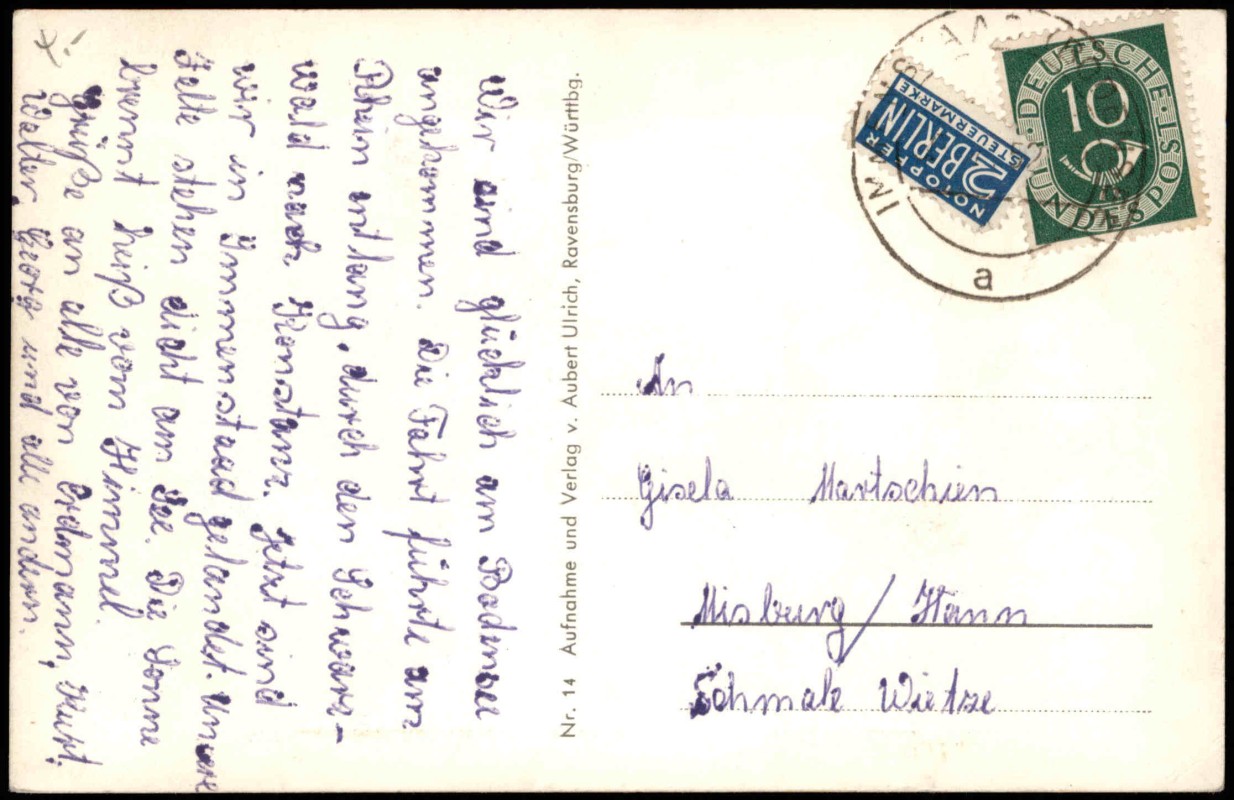 Wir sind glücklich am Bodensee
angekommen. Die Fahrt führte am
Rhein entlang, durch den Schwarz-
wald nach Konstanz. Jetzt sind
wir in Immenstaad gelandet. Unsere
Zelte stehen dicht am See. Die Sonne
brennt heiß vom Himmel.
Grüße an alle von Erdmann, Kurt,
Walter, Georg und alle andern.
Nr. 14 Aufnahme und Verlag v. Aubert Ulrich, Ravensburg/Württbg.
NOTOPFER
2 BERLIN
STEUERMARKE
DEUTSCHE BUNDESPOST
10
IMMENSTAAD
a
An
Gisela Martschien
Misburg / Hann
Schmale Wietze